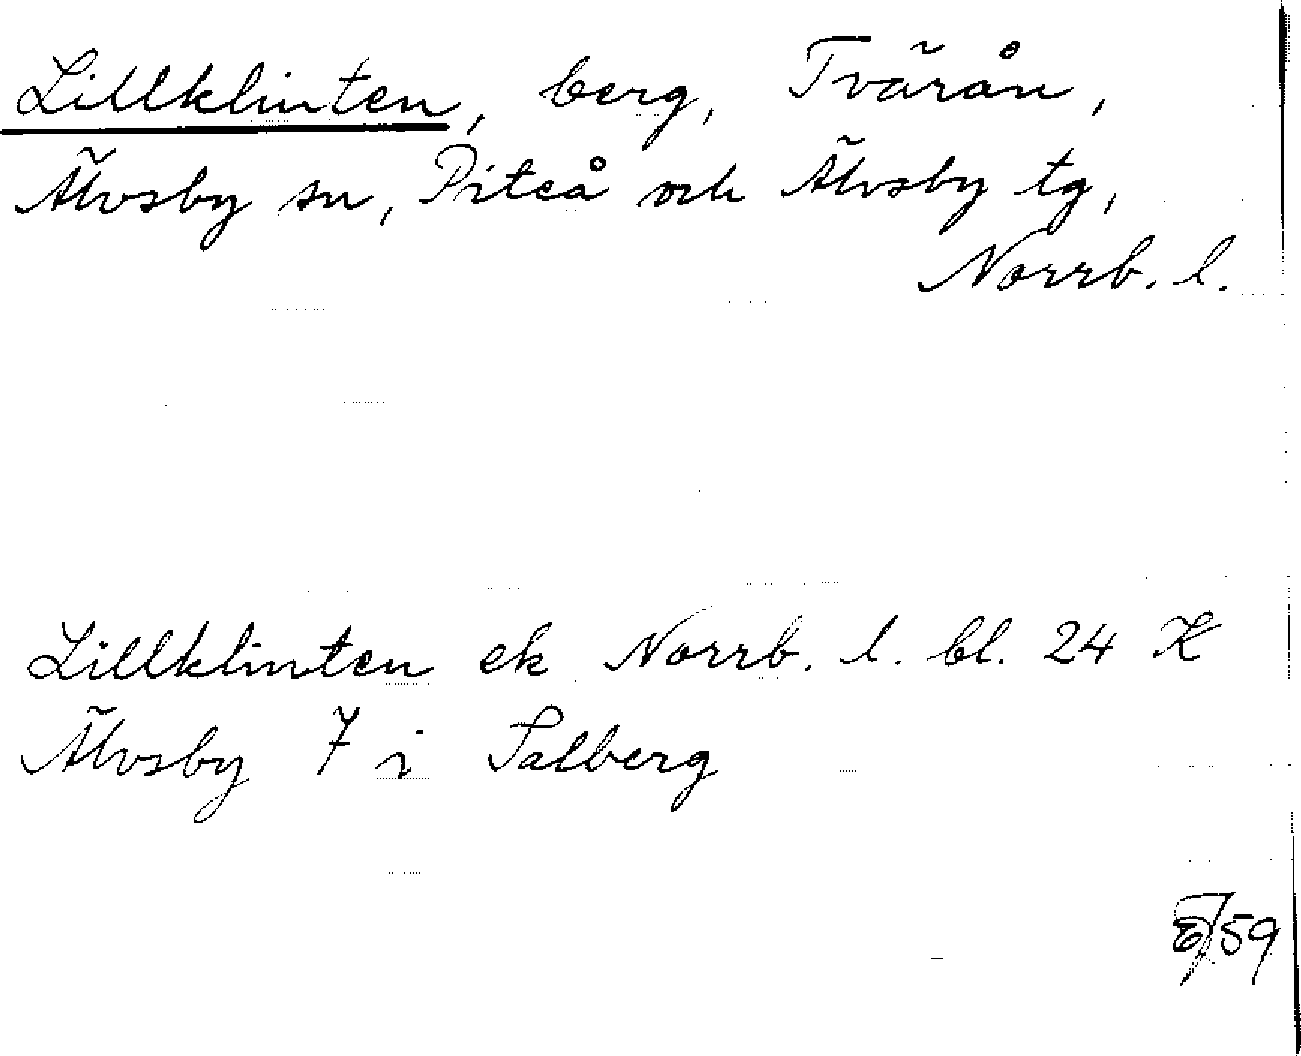 Lillklinten, berg, Tvärån,
Älvsby sn, Piteå och Älvsby tg,
Norrb. l.
Lillklinten ek Norrb. l. bl. 24 K
Älvsby 7 i Salberg
59